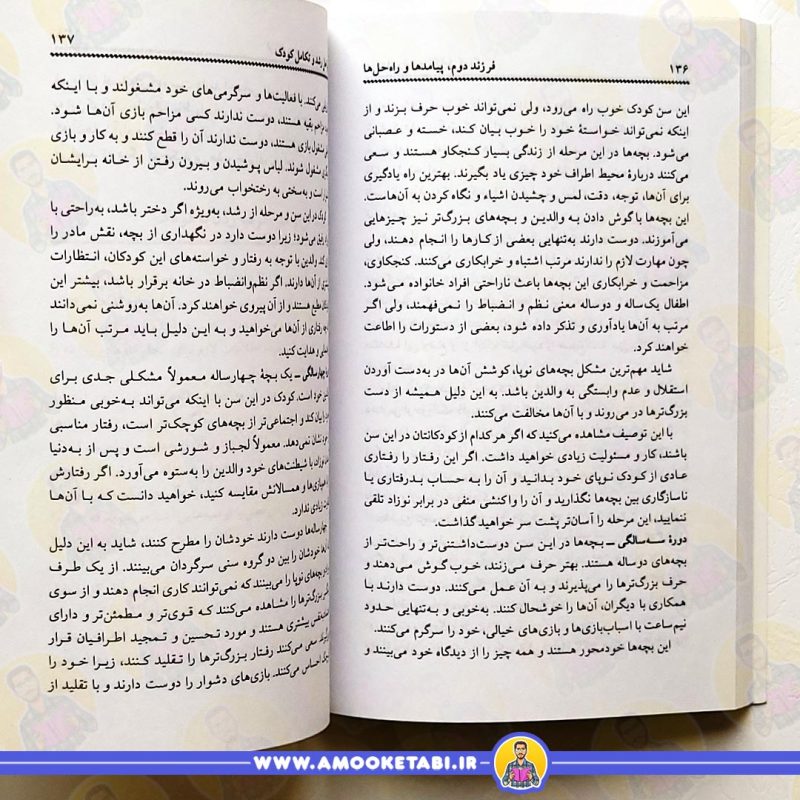 ۱۳۶
فرزند دوم، پیامدها و راه‌حل‌ها
این سن کودک خوب راه می‌رود، ولی نمی‌تواند خوب حرف بزند و از
اینکه نمی‌تواند خواستهٔ خود را خوب بیان کند، خسته و عصبانی
می‌شود. بچه‌ها در این مرحله از زندگی بسیار کنجکاو هستند و سعی
می‌کنند دربارهٔ محیط اطراف خود چیزی یاد بگیرند. بهترین راه یادگیری
برای آن‌ها، توجه، دقت، لمس و چشیدن اشیاء و نگاه کردن به آن‌هاست.
این بچه‌ها با گوش دادن به والدین و بچه‌های بزرگ‌تر نیز چیزهایی
می‌آموزند. دوست دارند به‌تنهایی بعضی از کارها را انجام دهند، ولی
چون مهارت لازم را ندارند مرتب اشتباه و خرابکاری می‌کنند. کنجکاوی،
مزاحمت و خرابکاری این بچه‌ها باعث ناراحتی افراد خانواده می‌شود.
اطفال یک‌ساله و دوساله معنی نظم و انضباط را نمی‌فهمند، ولی اگر
مرتب به آن‌ها یادآوری و تذکر داده شود، بعضی از دستورات را اطاعت
خواهند کرد.
شاید مهم‌ترین مشکل بچه‌های نوپا، کوشش آن‌ها در به‌دست آوردن
استقلال و عدم وابستگی به والدین باشد. به این دلیل همیشه از دست
بزرگ‌ترها در می‌روند و با آن‌ها مخالفت می‌کنند.
با این توصیف مشاهده می‌کنید که اگر هر کدام از کودکانتان در این سن
باشند، کار و مسئولیت زیادی خواهید داشت. اگر این رفتار را رفتاری
عادی از کودک نوپای خود بدانید و آن را به حساب بدرفتاری یا
ناسازگاری بین بچه‌ها نگذارید و آن را واکنشی منفی در برابر نوزاد تلقی
ننمایید، این مرحله را آسان‌تر پشت سر خواهید گذاشت.
دورهٔ سه‌سالگی ـ بچه‌ها در این سن دوست‌داشتنی‌تر و راحت‌تر از
بچه‌های دوساله هستند. بهتر حرف می‌زنند، خوب گوش می‌دهند و
حرف بزرگ‌ترها را می‌پذیرند و به آن عمل می‌کنند. دوست دارند با
همکاری با دیگران، آن‌ها را خوشحال کنند. به‌خوبی و به‌تنهایی حدود
نیم ساعت با اسباب‌بازی‌ها و بازی‌های خیالی، خود را سرگرم می‌کنند.
این بچه‌ها خودمحور هستند و همه چیز را از دیدگاه خود می‌بینند و
رشد و تکامل کودک
۱۳۷
می‌کنند. با فعالیت‌ها و سرگرمی‌های خود مشغولند و با اینکه
مزاحم بقیه هستند، دوست ندارند کسی مزاحم بازی آن‌ها شود.
مشغول بازی هستند، دوست ندارند آن را قطع کنند و به کار و بازی
مشغول شوند. لباس پوشیدن و بیرون رفتن از خانه برایشان
است و به‌سختی به رختخواب می‌روند.
کودک در این سن و مرحله از رشد، به‌ویژه اگر دختر باشد، به‌راحتی با
می‌شود؛ زیرا دوست دارد در نگهداری از بچه، نقش مادر را
کند. والدین با توجه به رفتار و خواسته‌های این کودکان، انتظارات
از آن‌ها دارند. اگر نظم‌وانضباط در خانه برقرار باشد، بیشتر این
مطیع هستند و از آن پیروی خواهند کرد. آن‌ها به‌روشنی نمی‌دانند
رفتاری از آن‌ها می‌خواهید و به این دلیل باید مرتب آن‌ها را
و هدایت کنید.
چهارسالگی ـ یک بچهٔ چهارساله معمولاً مشکلی جدی برای
خود است. کودک در این سن با اینکه می‌تواند به‌خوبی منظور
را بیان کند و اجتماعی‌تر از بچه‌های کوچک‌تر است، رفتار مناسبی
خود نشان نمی‌دهد. معمولاً لجباز و شورشی است و پس از به‌دنیا
نوزاد، با شیطنت‌های خود والدین را به‌ستوه می‌آورد. اگر رفتارش
و همسالانش مقایسه کنید، خواهید دانست که با آن‌ها
زیادی ندارد.
چهارساله‌ها دوست دارند خودشان را مطرح کنند، شاید به این دلیل
خودشان را بین دو گروه سنی سرگردان می‌بینند. از یک طرف
بچه‌های نوپا را می‌بینند که نمی‌توانند کاری انجام دهند و از سوی
بزرگ‌ترها را مشاهده می‌کنند که قوی‌تر و مطمئن‌تر و دارای
بیشتری هستند و مورد تحسین و تمجید اطرافیان قرار
سعی می‌کنند رفتار بزرگ‌ترها را تقلید کنند، زیرا خود را
احساس می‌کنند. بازی‌های دشوار را دوست دارند و با تقلید از
WWW.AMOOKETABI.IR